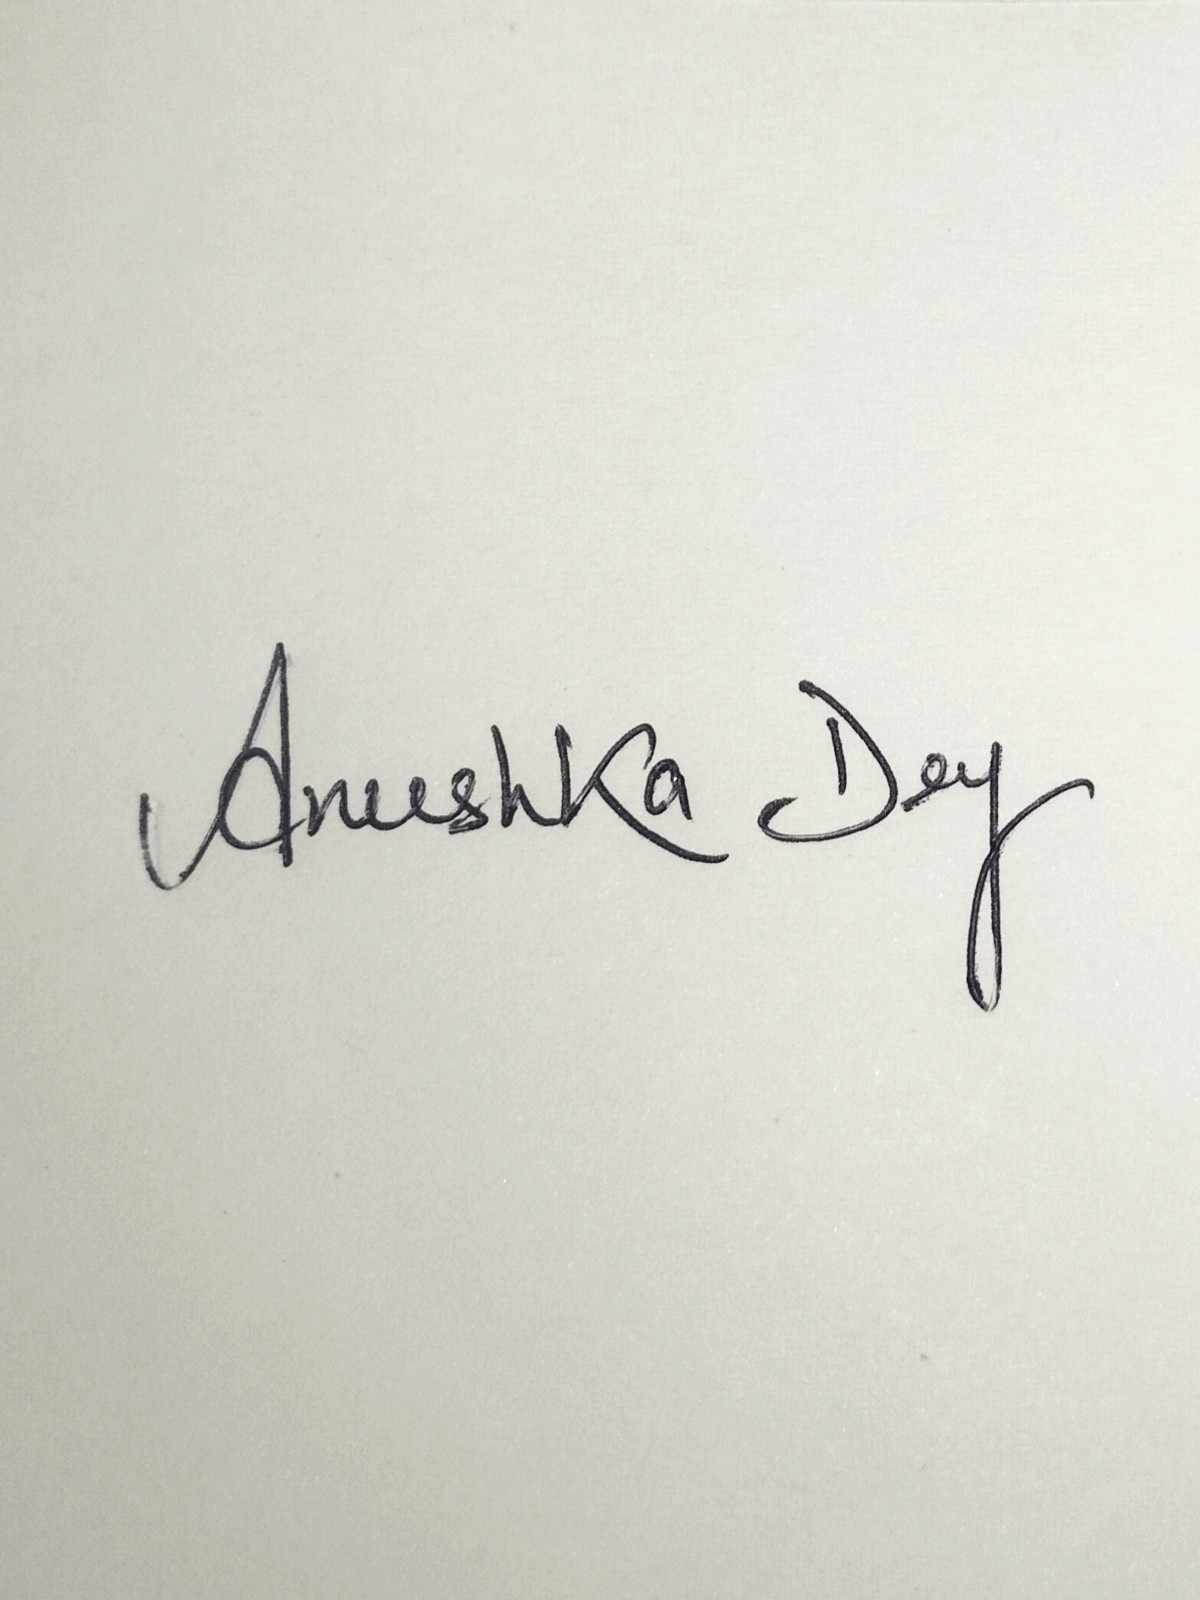 Anushka Dey